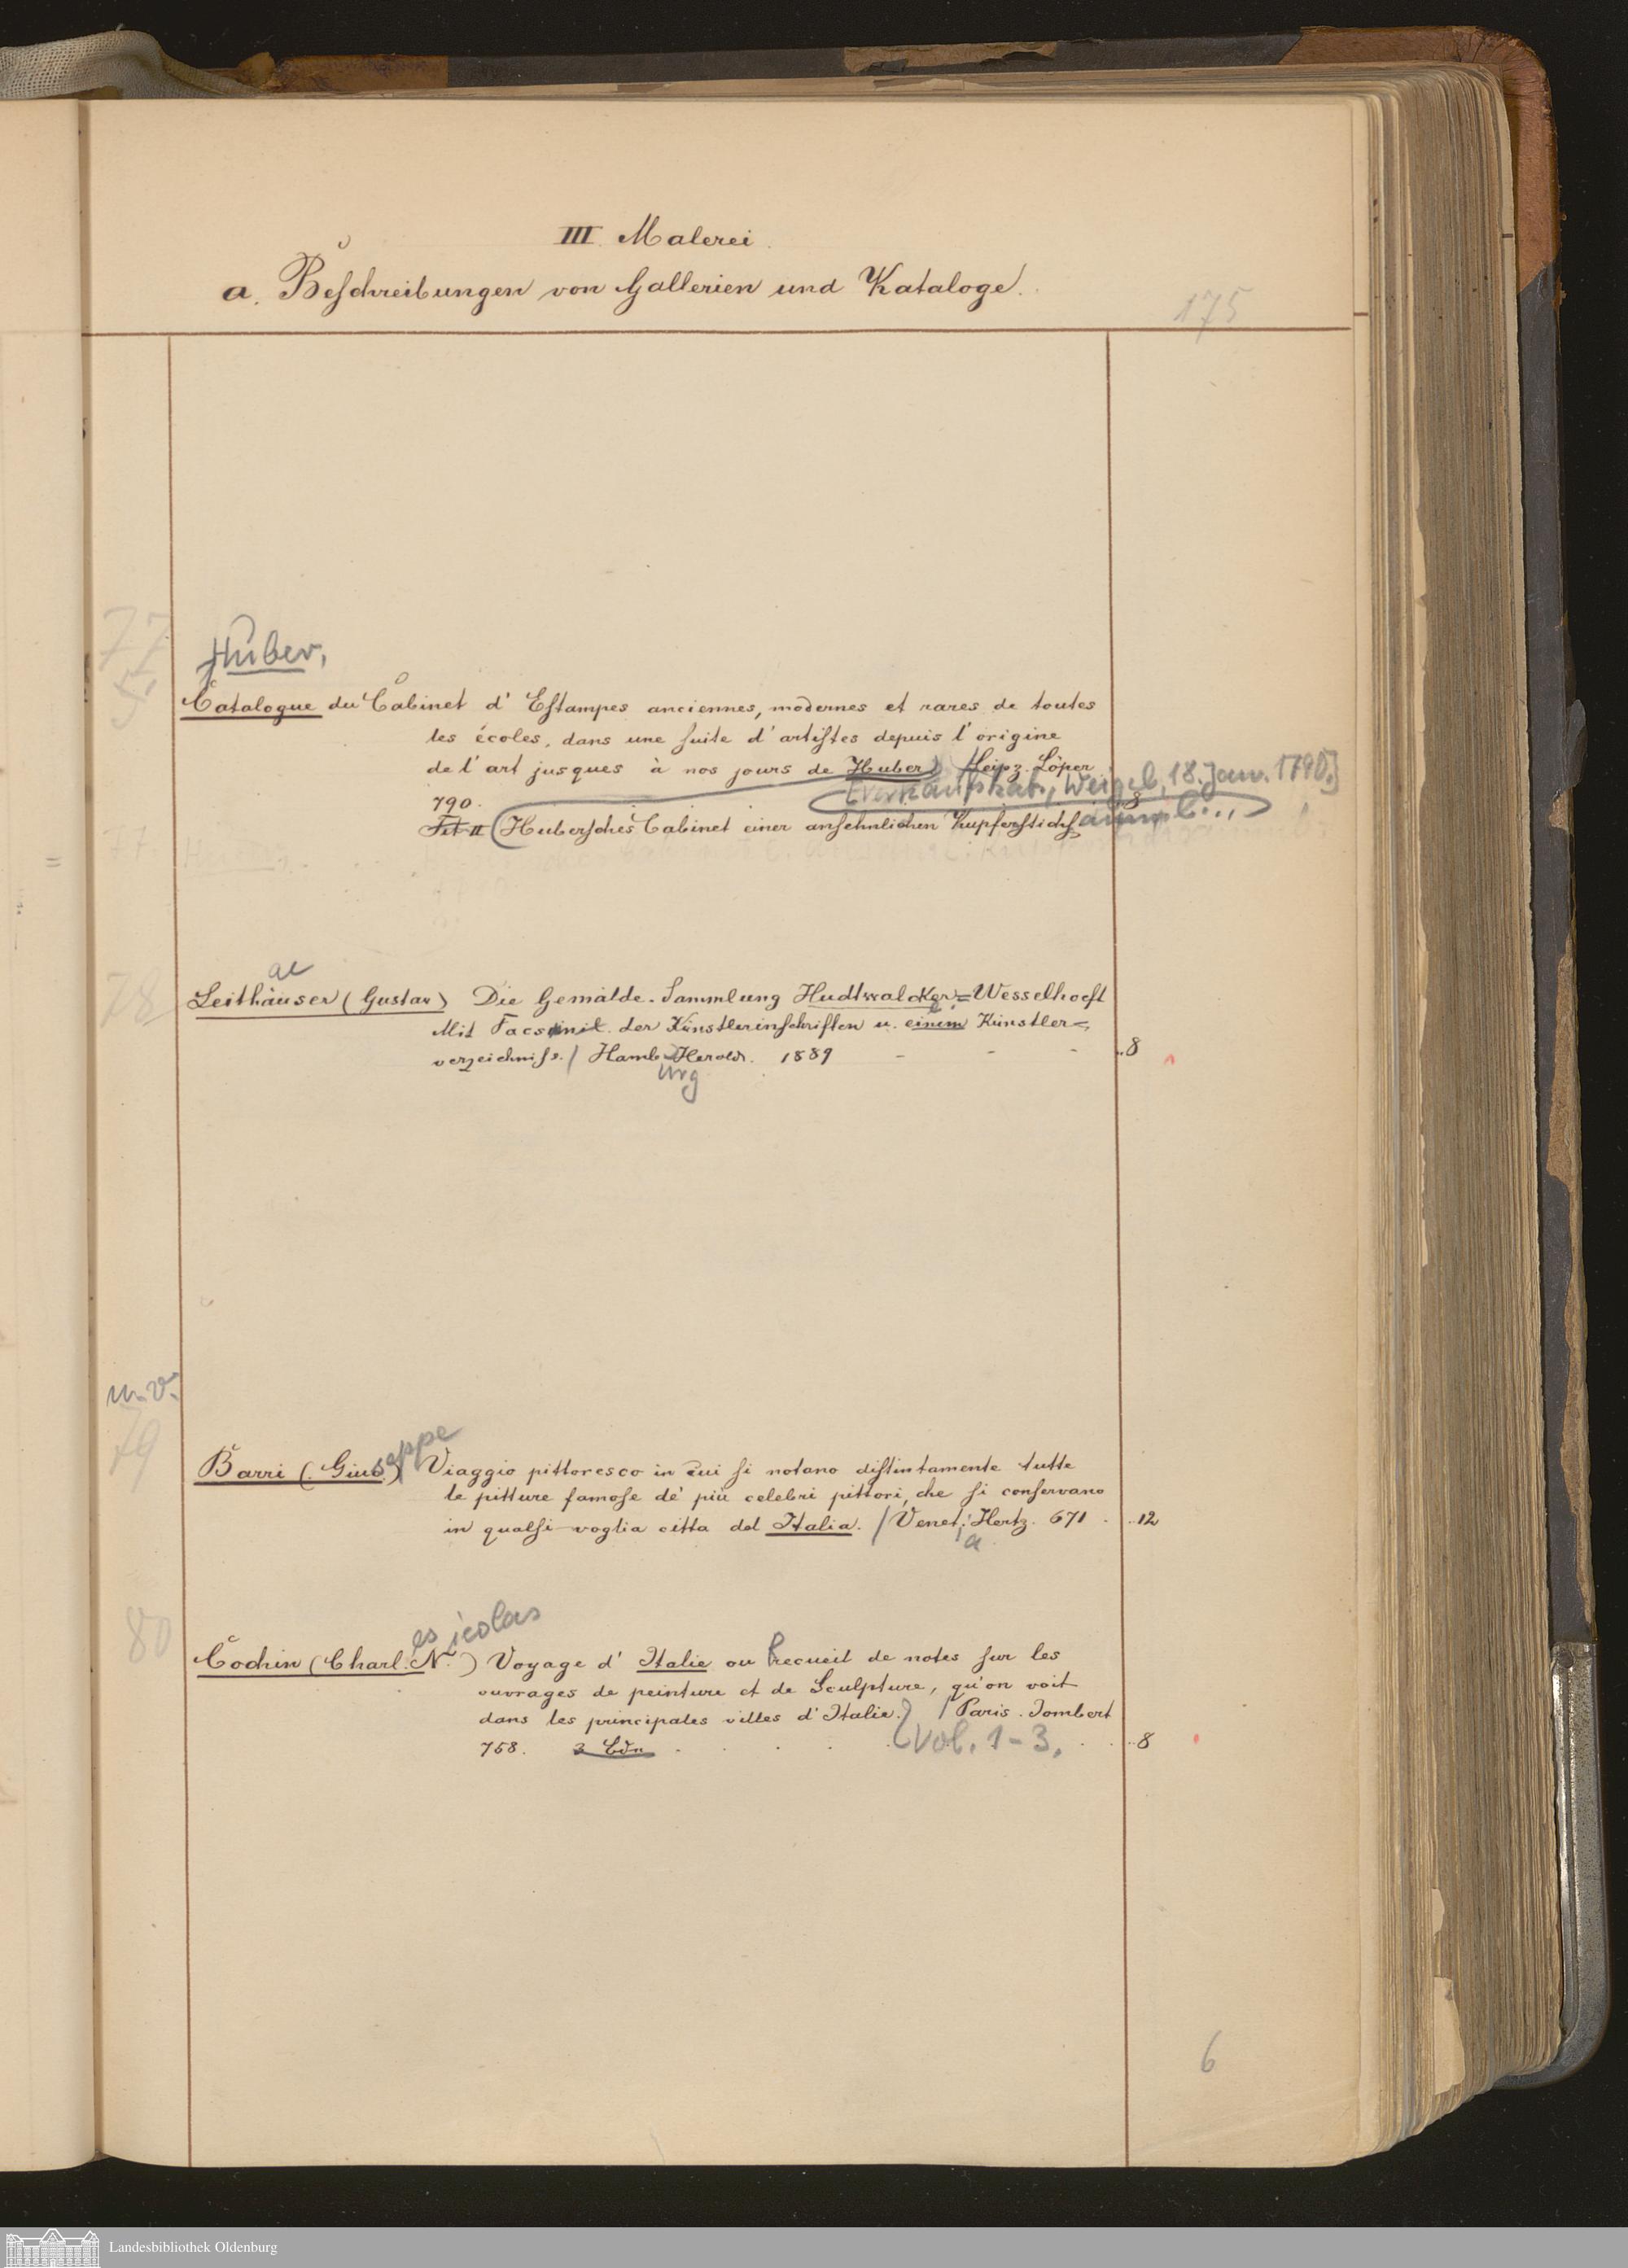 III. Malerei.
a. Beschreibungen von Gallerien und Kataloge.
175
77
Huber,
Catalogue du Cabinet d'Estampes anciennes, modernes et rares de toutes
les écoles, dans une suite d'artistes depuis l'origine
de l'art jusques à nos jours de Huber) Leipz. Löper
790. [Verkaufskat., Weigel, 18. Jan. 1790.] 8
Tit II (Hubersches Cabinet einer ansehnlichen Kupferstichs
77
78
ae
Leithäuser (Gustav) Die Gemälde-Sammlung Hudtwalcker=Wesselhoeft
Mit Facsimil. der Künstlerinschriften u. einem Künstler=
verzeichniss. / Hamb. Herold. 1889 - - - 8
urg
u. V.
79
eppe
Barri (Gius.) Viaggio pittoresco in cui si notano distintamente tutte
le pitture famose de' più celebri pittori, che si conservano
in qualsi-voglia citta del Italia. / Venet. Hertz. 671 . 12
a
80
es icolas
Cochin (Charl. N.) Voyage d'Italie ou Recueil de notes sur les
ouvrages de peinture et de Sculpture, qu'on voit
dans les principales villes d'Italie.) / Paris. Jombert
758. 3 Bdn . . . . Vol. 1-3. . . 8
6
Landesbibliothek Oldenburg